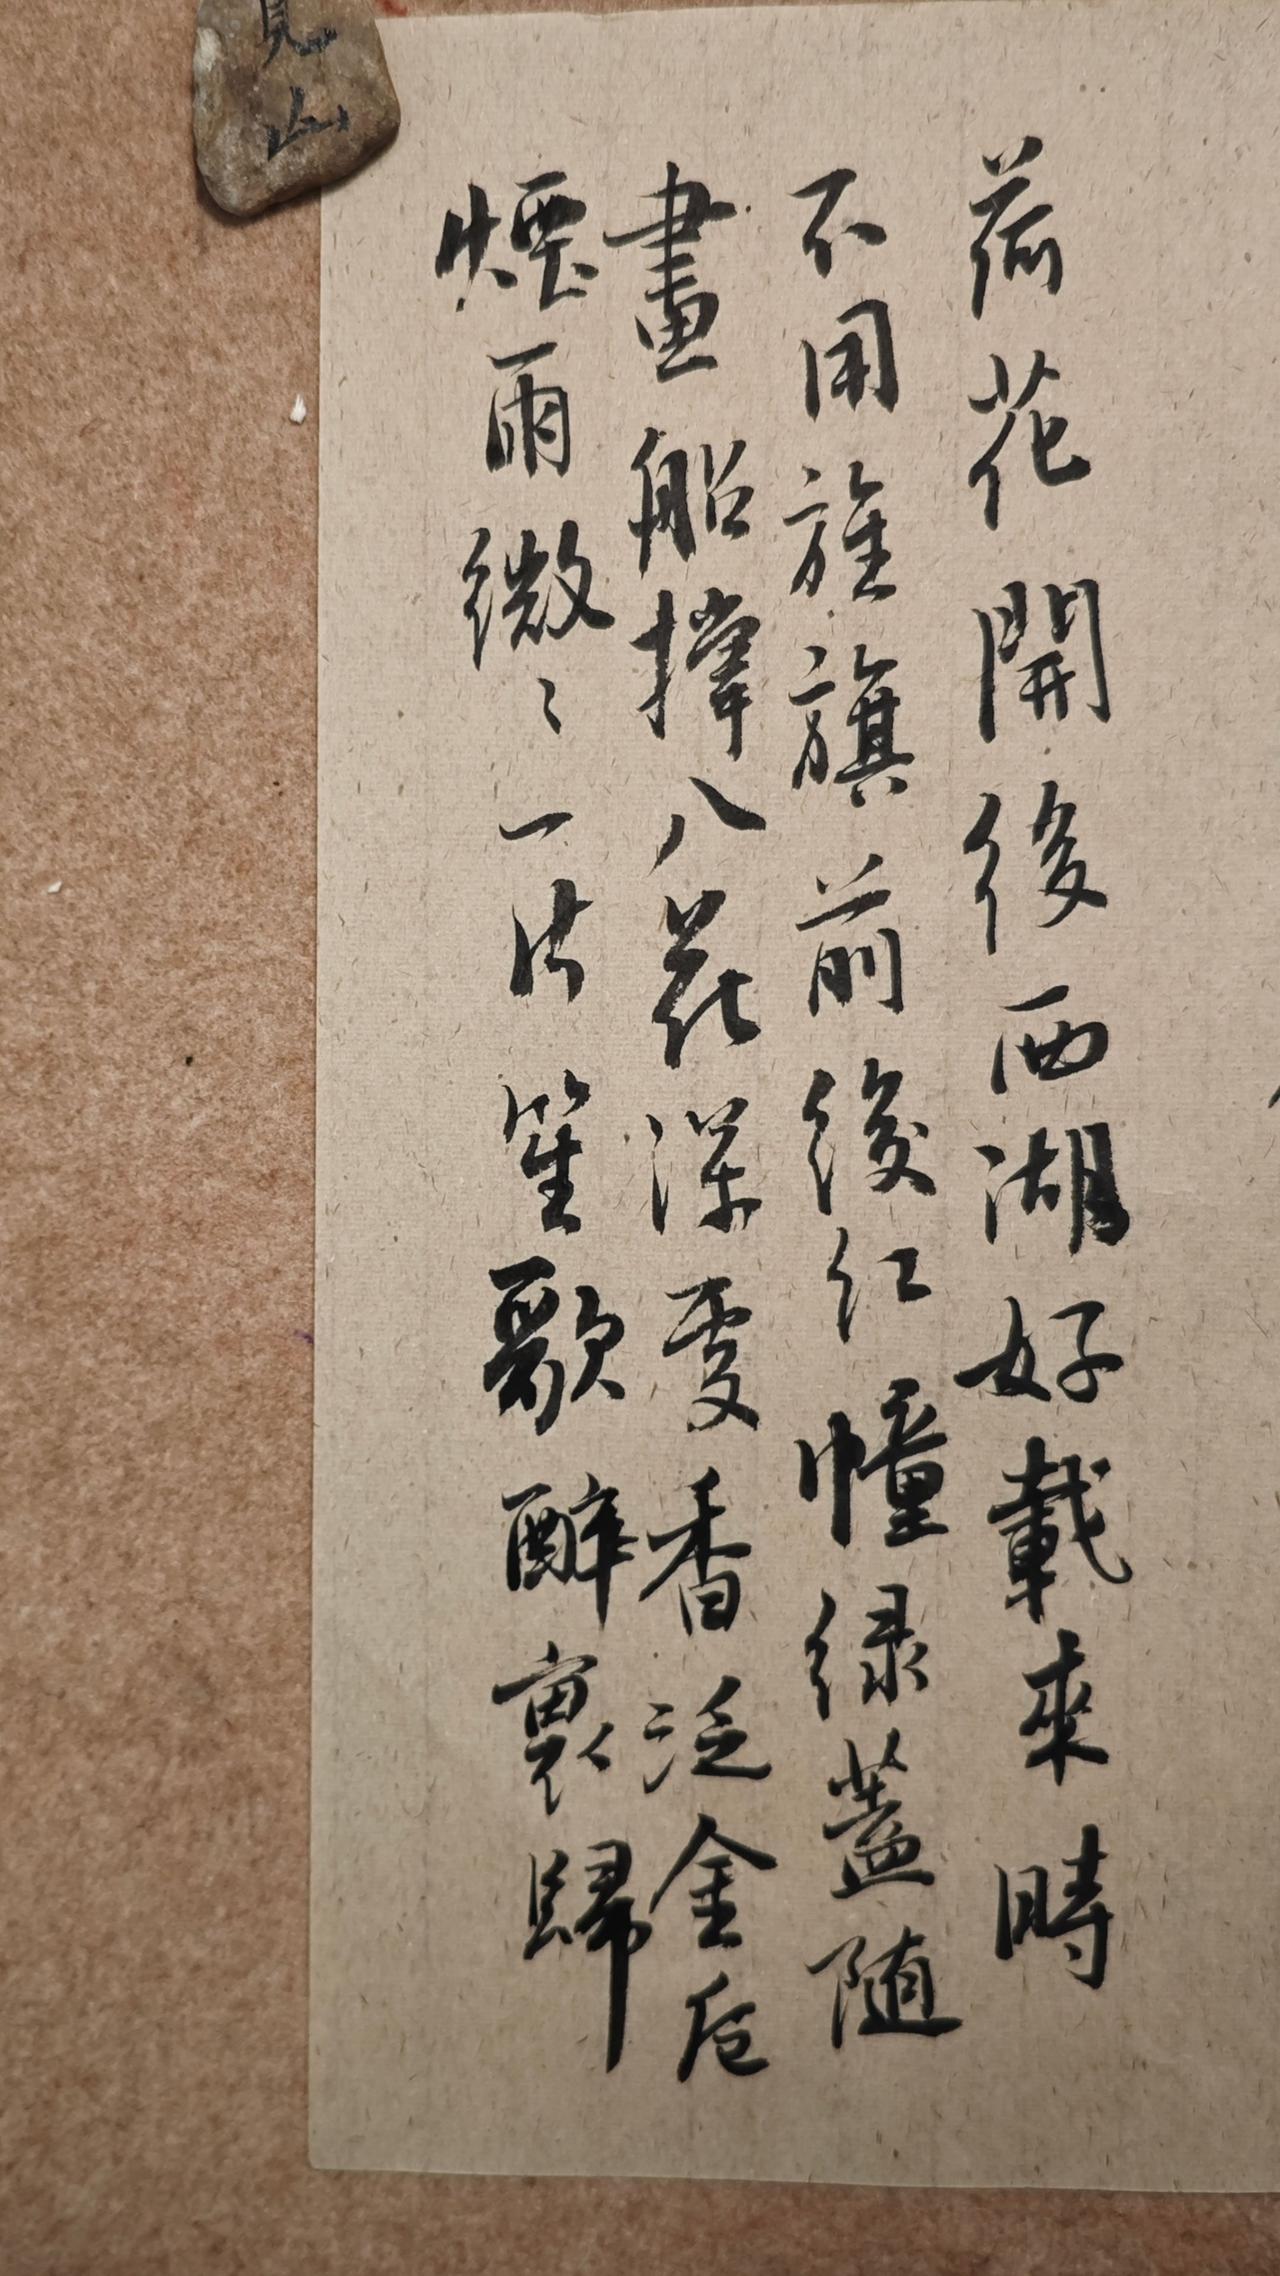 荷花開後西湖好載來時
不用旌旗前後紅幢緑蓋随
畫船撑入花深處香泛金卮
煙雨微〻一片笙歌醉裏歸
見山